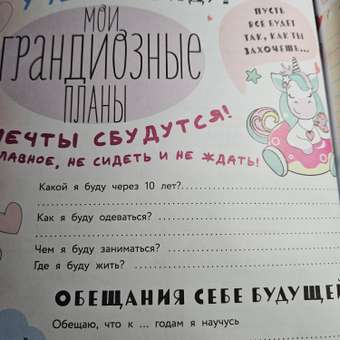 МОИ
ГРАНДИОЗНЫЕ
ПЛАНЫ
ПУСТЬ
ВСЕ БУДЕТ
ТАК, КАК ТЫ
ЗАХОЧЕШЬ...
МЕЧТЫ СБУДУТСЯ!
ГЛАВНОЕ, НЕ СИДЕТЬ И НЕ ЖДАТЬ!
Какой я буду через 10 лет?
Как я буду одеваться?
Чем я буду заниматься?
Где я буду жить?
ОБЕЩАНИЯ СЕБЕ БУДУЩЕЙ
Обещаю, что к ... годам я научусь